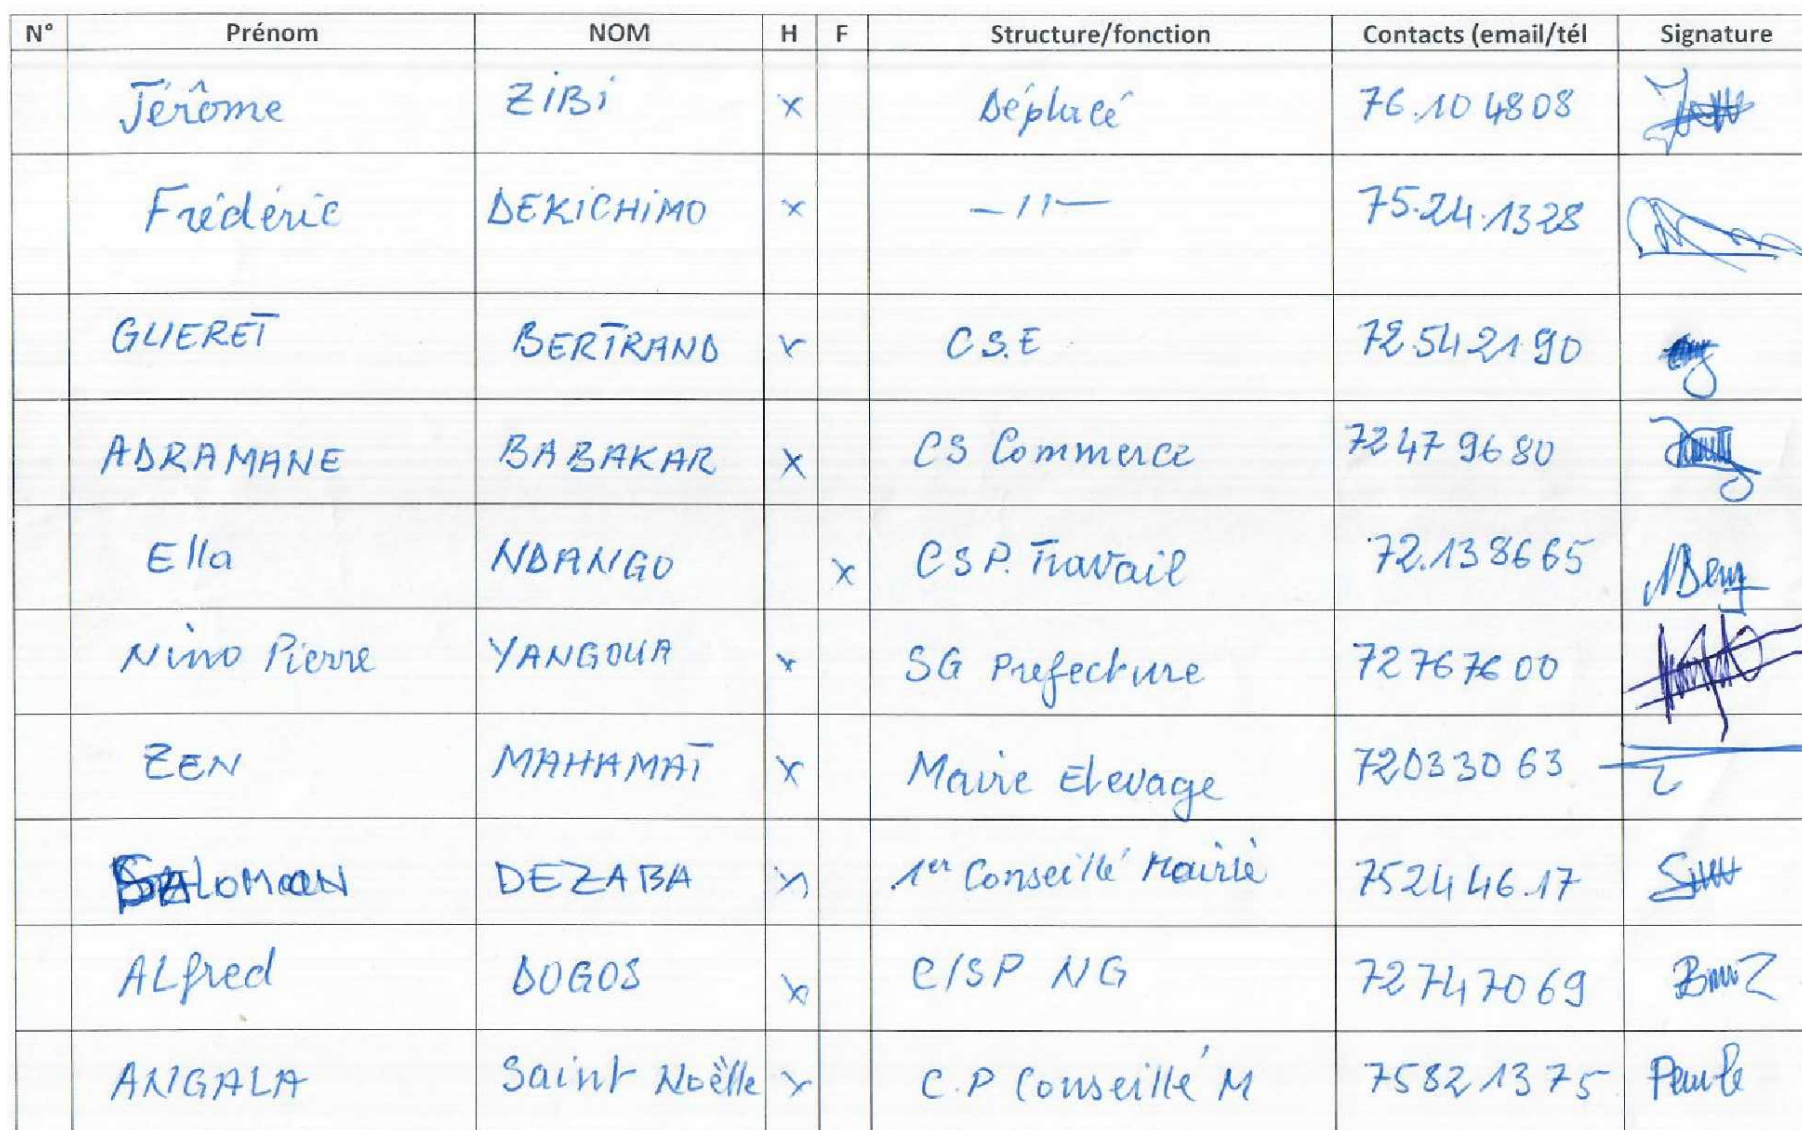 N° Prénom NOM H F Structure/fonction Contacts (email/tél Signature
Jérôme ZiBi x Déplacé 76.10 4808
Frédéric DEKiCHiMO x -11- 75.24.1328
GUERET BERTRAND x C.S.E 72.54 21 90
ADRAMANE BABAKAR x CS Commerce 72 47 96 80
Ella NDANGO x CSP. Travail 72.138665
Nino Pierre YANGOUA x SG Prefecture 72 76 76 00
ZEN MAHAMAT x Maire Elevage 72 03 30 63
SALOMON DEZABA x 1er Conseillé Mairie 7524446.17
ALfred DOGOS x C/SP NG 72 74 70 69
ANGALA Saint Noëlle x C.P Conseillé M 75 82 13 75